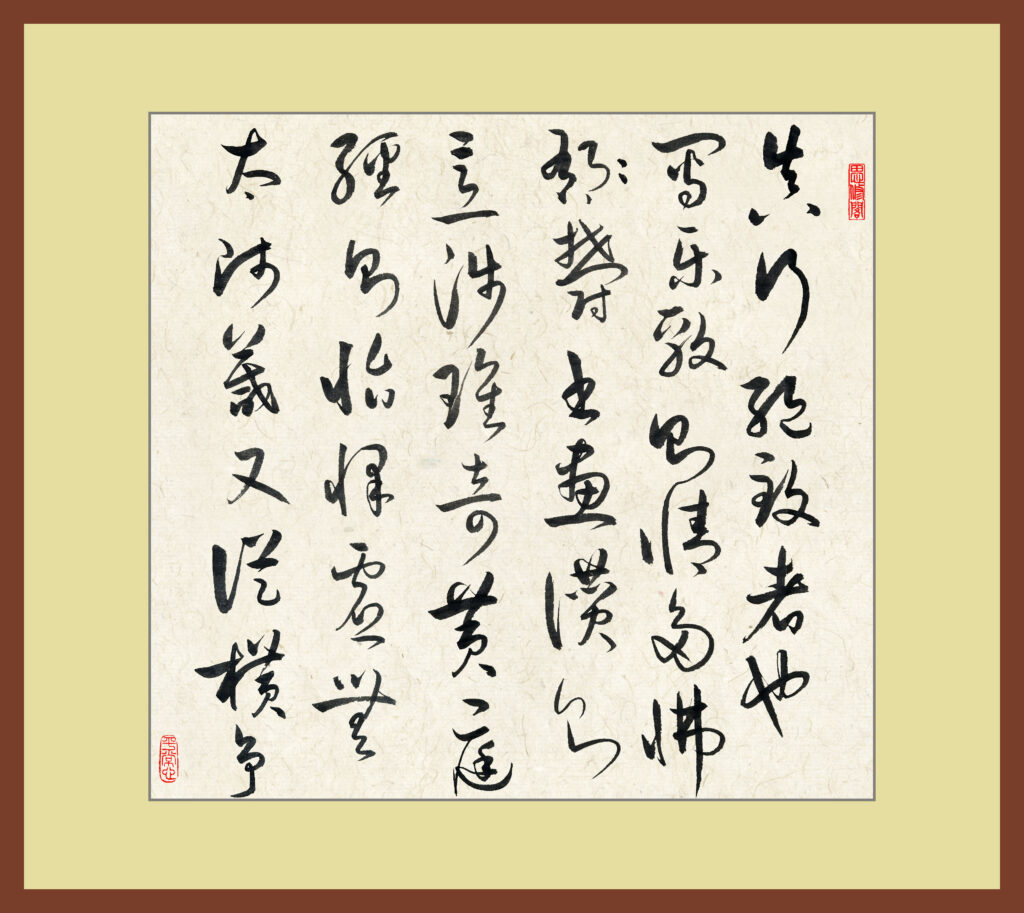 真行絶致者也
寫樂毅則情多怫
欝書畫讚則
意涉瓌奇黃庭
經則怡懌虛無
太師箴又從橫爭